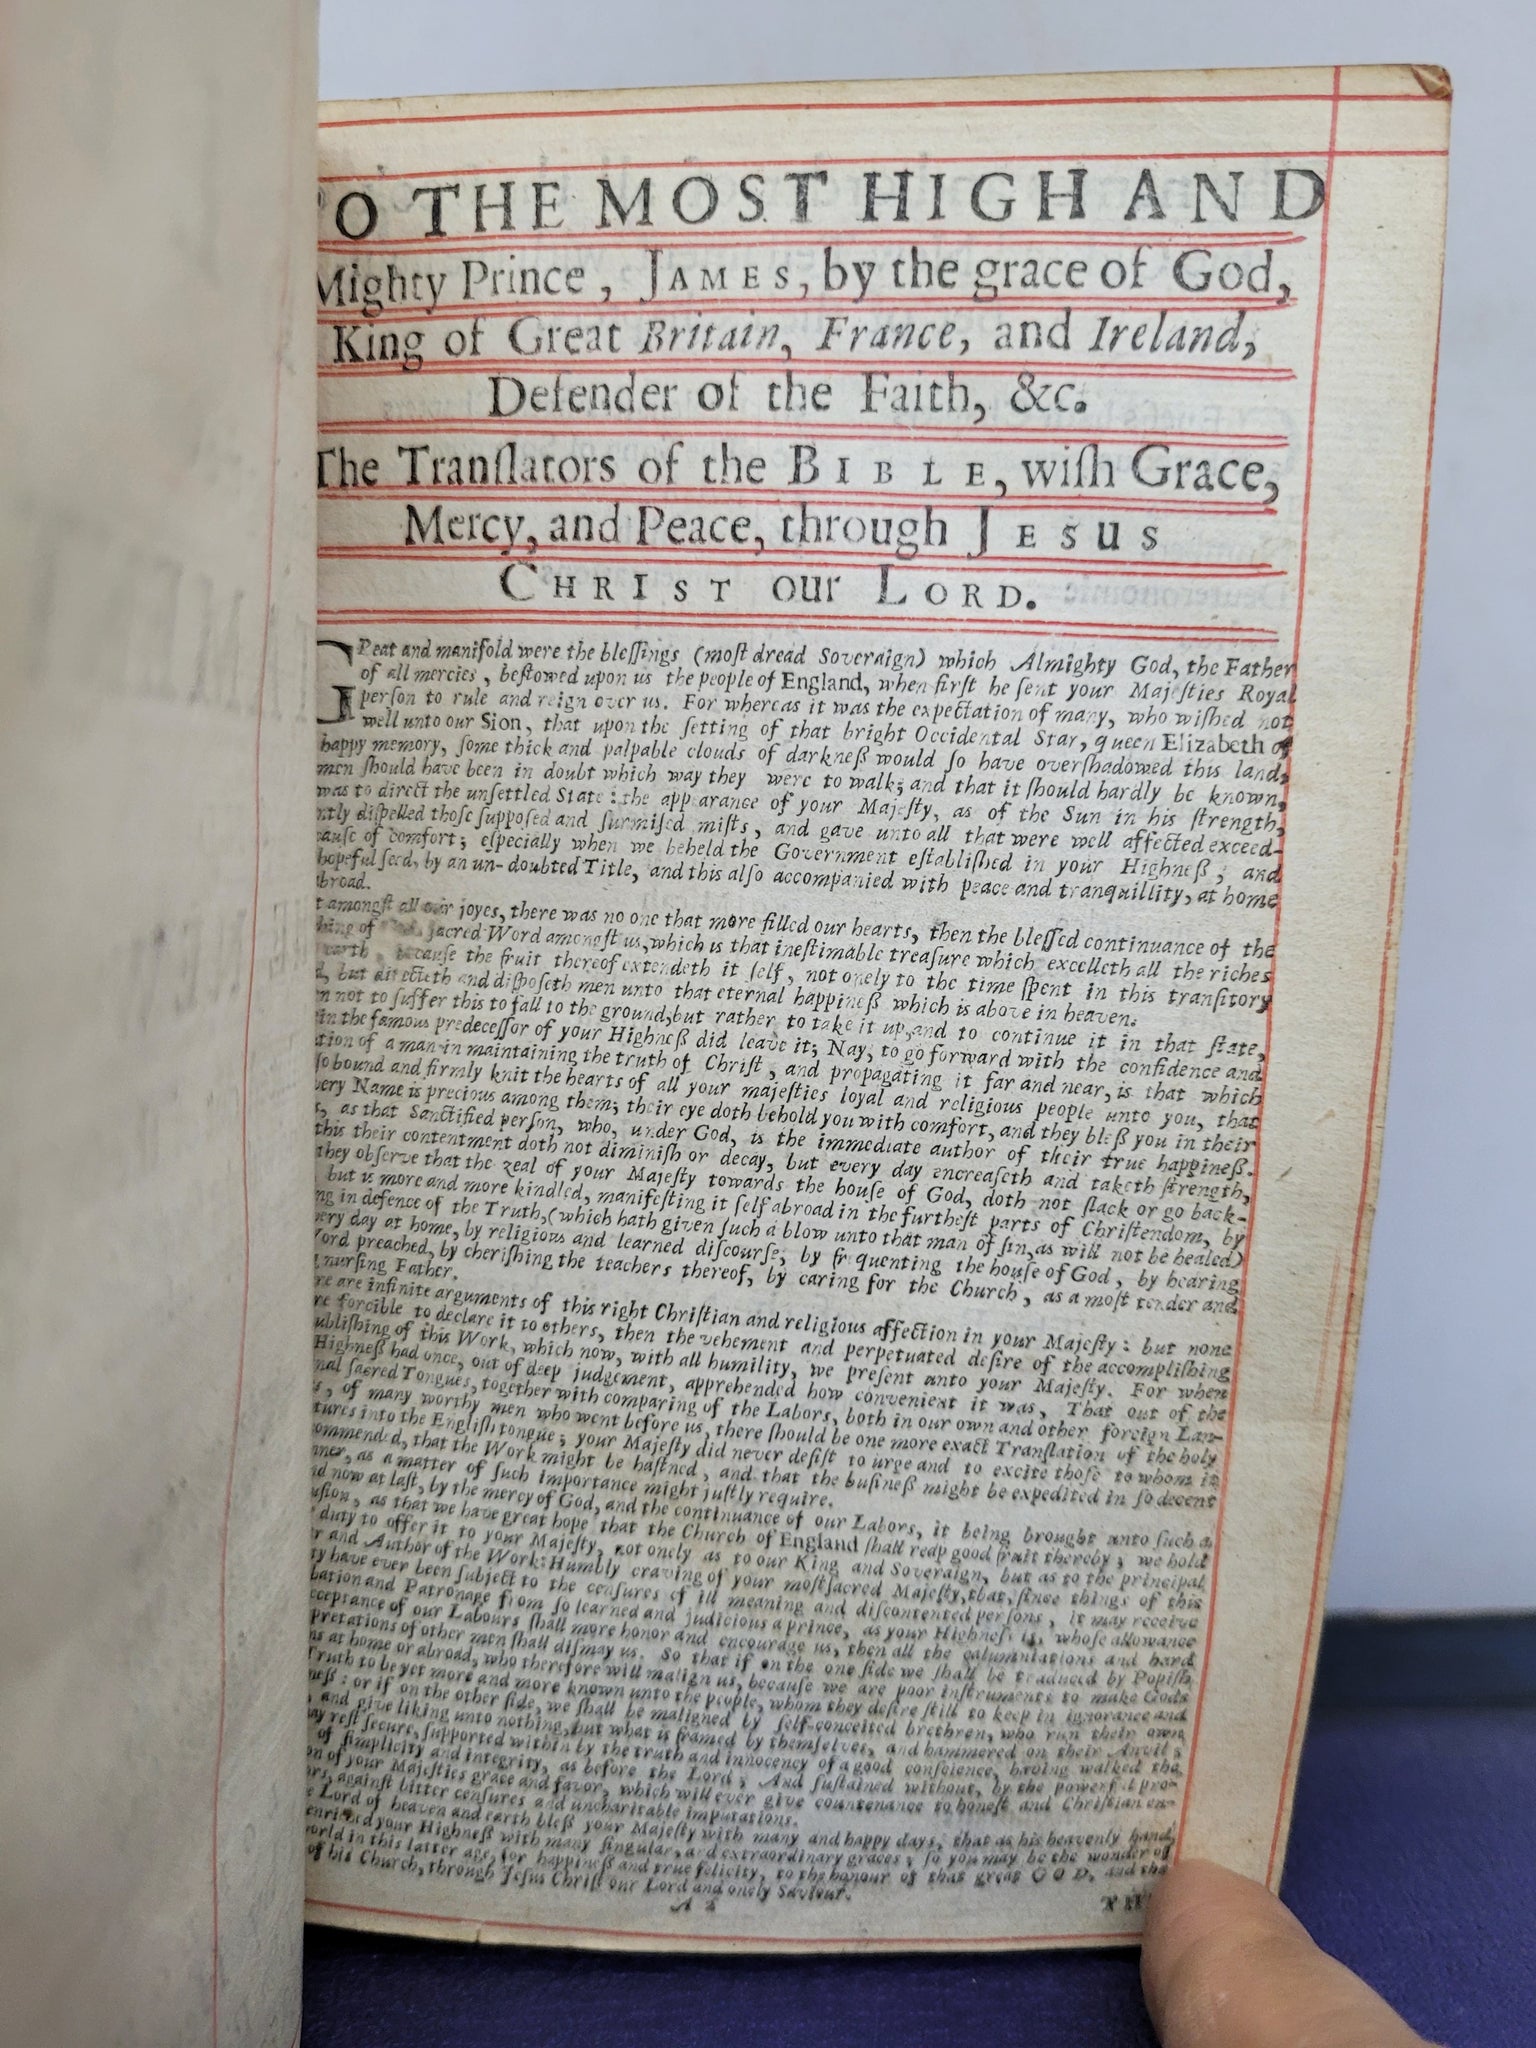 O THE MOST HIGH AND
Mighty Prince, JAMES, by the grace of God,
King of Great Britain, France, and Ireland,
Defender of the Faith, &c.
The Tranſlators of the BIBLE, wiſh Grace,
Mercy, and Peace, through JESUS
CHRIST our LORD.
GReat and manifold were the bleſſings (moſt dread Soveraign) which Almighty God, the Father
of all mercies, beſtowed upon us the people of England, when firſt he ſent your Majeſties Royal
perſon to rule and reign over us. For whereas it was the expectation of many, who wiſhed not
well unto our Sion, that upon the ſetting of that bright Occidental Star, queen Elizabeth of
happy memory, ſome thick and palpable clouds of darkneß would ſo have overſhadowed this land,
men ſhould have been in doubt which way they were to walk; and that it ſhould hardly be known,
was to direct the unſettled State: the appearance of your Majeſty, as of the Sun in his ſtrength,
ntly diſpelled thoſe ſuppoſed and ſurmiſed miſts, and gave unto all that were well affected exceed-
cauſe of comfort; eſpecially when we beheld the Government eſtabliſhed in your Highneß, and
hopeful ſeed, by an un-doubted Title, and this alſo accompanied with peace and tranquillity, at home
broad.
t amongſt all our joyes, there was no one that more filled our hearts, then the bleſſed continuance of the
hing of ſacred Word amongſt us, which is that ineſtimable treaſure which excelleth all the riches
earth, becauſe the fruit thereof extendeth it ſelf, not onely to the time ſpent in this tranſitory
d, but directeth and diſpoſeth men unto that eternal happineß which is above in heaven.
n not to ſuffer this to fall to the ground, but rather to take it up, and to continue it in that ſtate,
in the famous predeceſſor of your Highneß did leave it; Nay, to go forward with the confidence and
tion of a man in maintaining the truth of Chriſt, and propagating it far and near, is that which
ſo bound and firmly knit the hearts of all your majeſties loyal and religious people unto you, that
very Name is precious among them; their eye doth behold you with comfort, and they bleß you in their
s, as that Sanctified perſon, who, under God, is the immediate author of their true happineß.
this their contentment doth not diminiſh or decay, but every day encreaſeth and taketh ſtrength,
they obſerve that the zeal of your Majeſty towards the houſe of God, doth not ſlack or go back-
, but is more and more kindled, manifeſting it ſelf abroad in the furtheſt parts of Chriſtendom, by
ng in defence of the Truth, (which hath given ſuch a blow unto that man of ſin, as will not be healed)
very day at home, by religious and learned diſcourſe, by frequenting the houſe of God, by hearing
Word preached, by cheriſhing the teachers thereof, by caring for the Church, as a moſt tender and
g nurſing Father.
re are infinite arguments of this right Chriſtian and religious affection in your Majeſty: but none
re forcible to declare it to others, then the vehement and perpetuated deſire of the accompliſhing
ubliſhing of this Work, which now, with all humility, we preſent unto your Majeſty. For when
Highneß had once, out of deep judgement, apprehended how convenient it was, That out of the
nal ſacred Tongues, together with comparing of the Labors, both in our own and other foreign Lan-
s, of many worthy men who went before us, there ſhould be one more exact Tranſlation of the holy
tures into the Engliſh tongue; your Majeſty did never deſiſt to urge and to excite thoſe to whom it
ommended, that the Work might be haſtned, and that the buſineß might be expedited in ſo decent
nner, as a matter of ſuch importance might juſtly require.
nd now at laſt, by the mercy of God, and the continuance of our Labors, it being brought unto ſuch a
uſion, as that we have great hope that the Church of England ſhall reap good fruit thereby; we hold
duty to offer it to your Majeſty, not onely as to our King and Soveraign, but as to the principal
r and Author of the Work: Humbly craving of your moſt ſacred Majeſty, that, ſince things of this
ty have ever been ſubject to the cenſures of ill meaning and diſcontented perſons, it may receive
bation and Patronage from ſo learned and judicious a prince, as your Highneſs is, whoſe allowance
cceptance of our Labours ſhall more honor and encourage us, then all the calumniations and hard
pretations of other men ſhall diſmay us. So that if on the one ſide we ſhall be traduced by Popiſh
ns at home or abroad, who therefore will malign us, becauſe we are poor inſtruments to make Gods
Truth to be yet more and more known unto the people, whom they deſire ſtill to keep in ignorance and
neß: or if on the other ſide, we ſhall be maligned by ſelf-conceited brethren, who run their own
, and give liking unto nothing, but what is framed by themſelves, and hammered on their Anvil;
ay reſt ſecure, ſupported within by the truth and innocency of a good conſcience, having walked the
of ſimplicity and integrity, as before the Lord; And ſuſtained without, by the powerful pro-
on of your Majeſties grace and favor, which will ever give countenance to honeſt and Chriſtian en-
rs, againſt bitter cenſures and uncharitable imputations.
e Lord of heaven and earth bleſs your Majeſty with many and happy days, that as his heavenly hand
enriched your Highneß with many ſingular, and extraordinary graces; ſo you may be the wonder of
world in this latter age, for happineſs and true felicity, to the honour of that great GOD, and the
of his Church, through Jeſus Chriſt our Lord and onely Saviour.
A 2